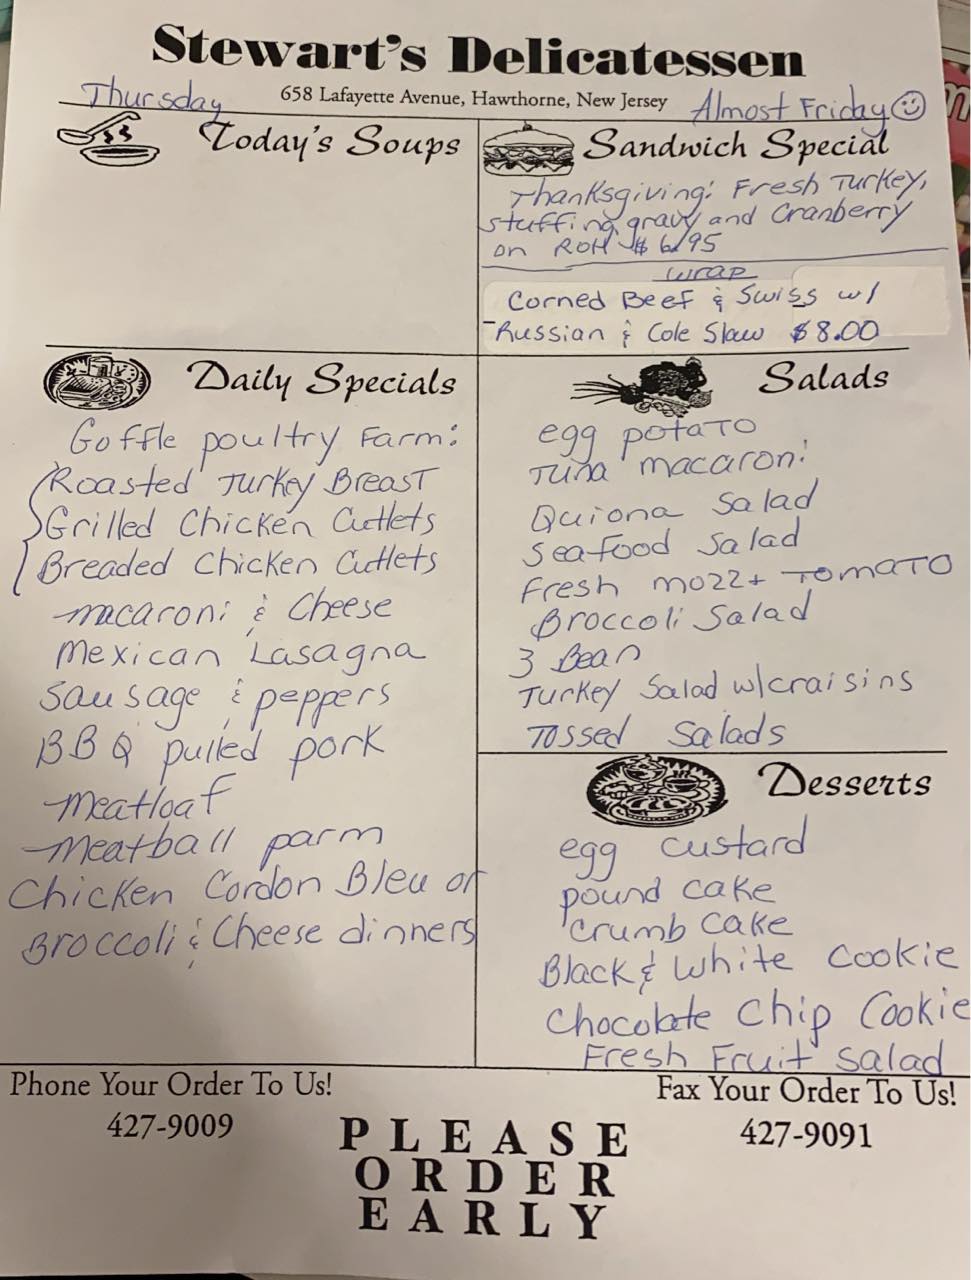 Stewart's Delicatessen
658 Lafayette Avenue, Hawthorne, New Jersey
Thursday
Almost Friday
Today's Soups
Sandwich Special
Thanksgiving: Fresh Turkey,
stuffing gravy and Cranberry
on Roll $6.95
wrap
Corned Beef & Swiss w/
Russian & Cole Slaw $8.00
Daily Specials
Goffle poultry Farm:
Roasted Turkey Breast
Grilled Chicken Cutlets
Breaded Chicken Cutlets
macaroni & Cheese
Mexican Lasagna
Sausage & peppers
BBQ pulled pork
Meatloaf
Meatball parm
Chicken Cordon Bleu or
Broccoli & Cheese dinners
Salads
egg potato
Tuna macaroni
Quiona Salad
Seafood Salad
Fresh mozz + Tomato
Broccoli Salad
3 Bean
Turkey Salad w/craisins
Tossed Salads
Desserts
egg custard
pound cake
crumb cake
Black & White Cookie
Chocolate Chip Cookie
Fresh Fruit Salad
Phone Your Order To Us!
427-9009
Fax Your Order To Us!
427-9091
PLEASE
ORDER
EARLY